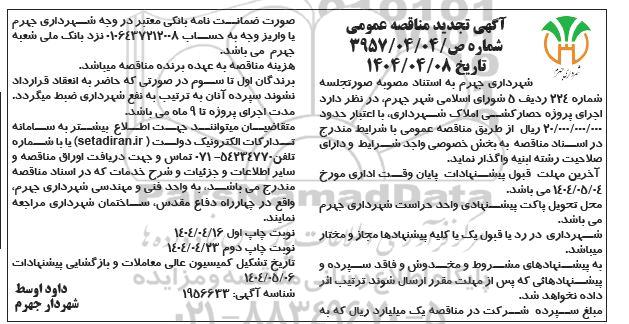 آگهی تجدید مناقصه عمومی
شماره ص/۳۹۵۷/۰۴/۰۴
تاریخ ۱۴۰۴/۰۴/۰۸
شهرداری جهرم
شهرداری جهرم به استناد مصوبه صورتجلسه
شماره ۲۲۴ ردیف ۵ شورای اسلامی شهر جهرم، در نظر دارد
اجرای پروژه حصارکشی املاک شهرداری، با اعتبار حدود
۲۰/۰۰۰/۰۰۰/۰۰۰ ریال از طریق مناقصه عمومی با شرایط مندرج
در اسناد مناقصه به بخش خصوصی واجد شرایط و دارای
صلاحیت رشته ابنیه واگذار نماید.
آخرین مهلت قبول پیشنهادات پایان وقت اداری مورخ
۱۴۰۴/۰۵/۰۴ می باشد.
محل تحویل پاکت پیشنهادی واحد حراست شهرداری جهرم
می باشد.
شهرداری در رد یا قبول یک یا کلیه پیشنهادها مجاز و مختار
میباشد.
به پیشنهادهای مشروط و مخدوش و فاقد سپرده و
پیشنهادهائی که پس از مهلت مقرر ارسال شوند ترتیب اثر
داده نخواهد شد.
مبلغ سپرده شرکت در مناقصه یک میلیارد ریال که به
صورت ضمانت نامه بانکی معتبر در وجه شهرداری جهرم
یا واریز وجه به حساب ۰۱۰۶۴۳۷۲۱۲۰۰۸ نزد بانک ملی شعبه
جهرم می باشد.
هزینه مناقصه به عهده برنده مناقصه میباشد.
برندگان اول تا سوم در صورتی که حاضر به انعقاد قرارداد
نشوند سپرده آنان به ترتیب به نفع شهرداری ضبط میگردد.
مدت اجرای پروژه تا ۹ ماه می باشد.
متقاضیان میتوانند جهت اطلاع بیشتر به سامانه
تدارکات الکترونیک دولت ( setadiran.ir) یا با شماره
تلفن۵۴۲۳۴۷۷۰-۰۷۱ تماس و جهت دریافت اوراق مناقصه و
سایر اطلاعات و جزئیات و شرح خدمات که در اسناد مناقصه
مندرج می باشد، به واحد فنی و مهندسی شهرداری جهرم،
واقع در چهارراه دفاع مقدس، ساختمان شهرداری مراجعه
نمایند.
نوبت چاپ اول ۱۴۰۴/۰۴/۱۶
نوبت چاپ دوم ۱۴۰۴/۰۴/۲۳
تاریخ تشکیل کمیسیون عالی معاملات و بازگشایی پیشنهادات
۱۴۰۴/۰۵/۰۶
شناسه آگهی: ۱۹۵۶۶۳۳
داود اوسط
شهردار جهرم
۰۲۱-۸۸۳۴۹۶۷۰-۵